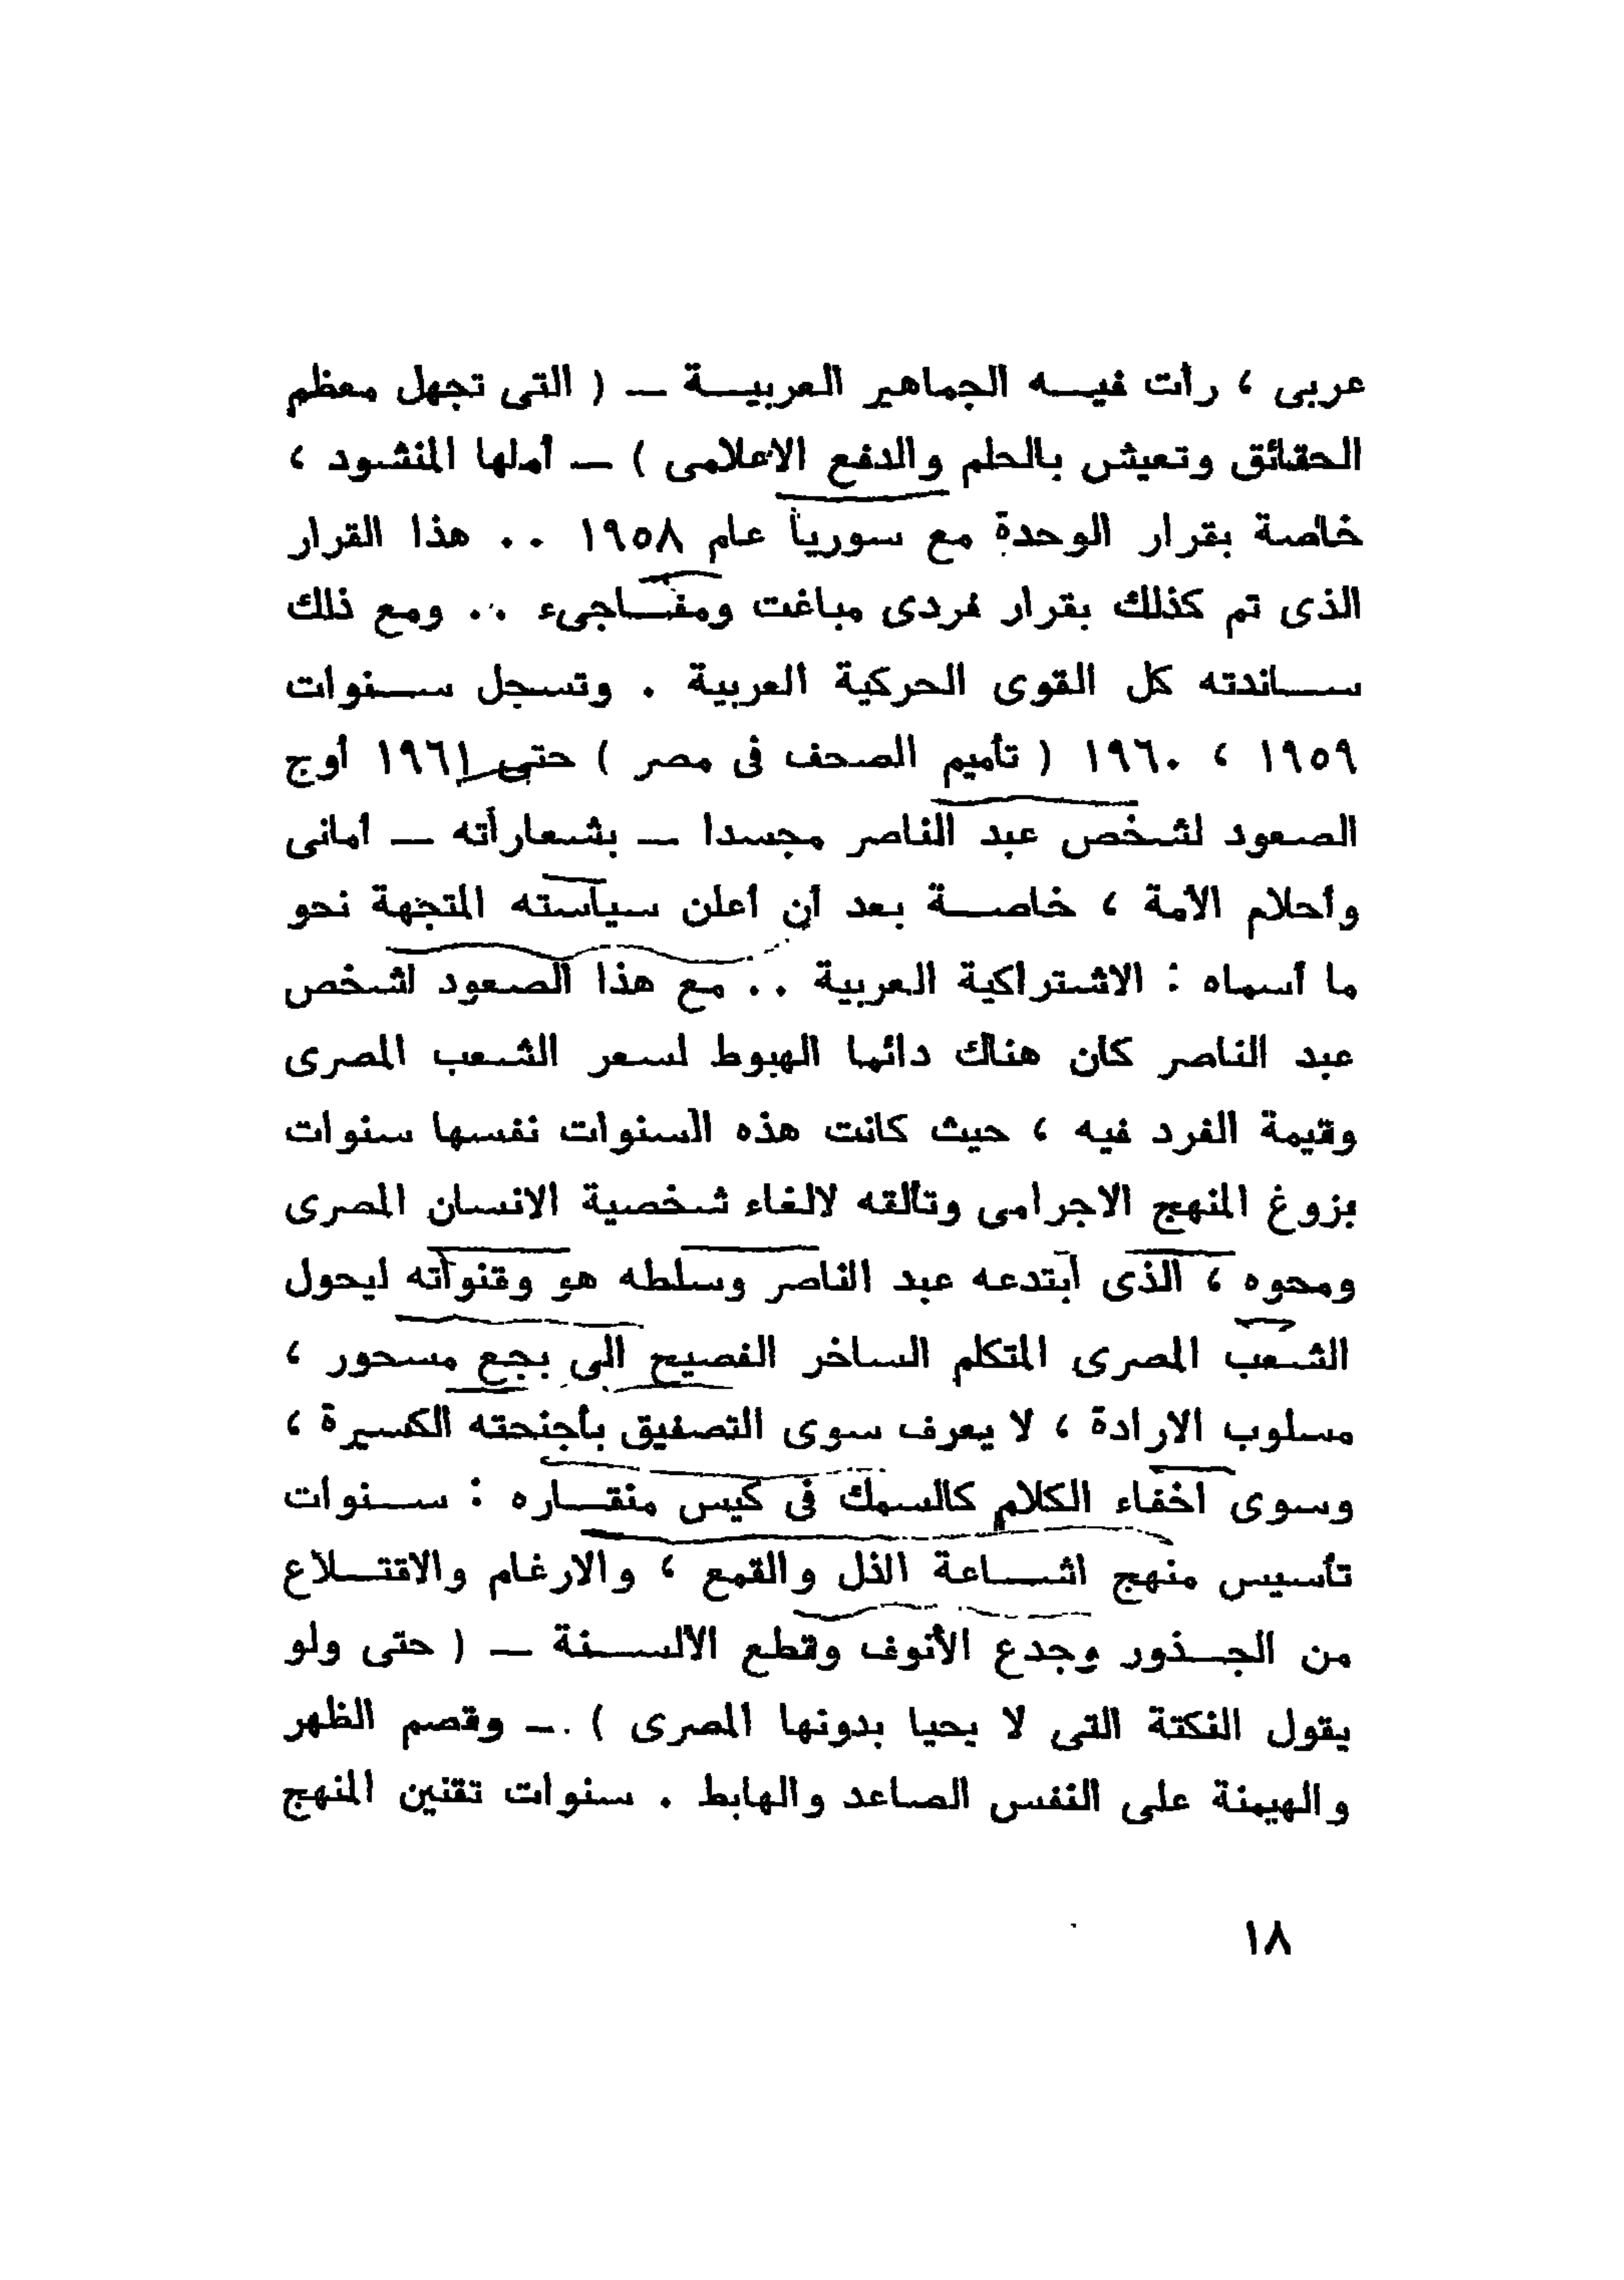 عربى ، رأت فيه الجماهير العربية — ( التى تجهل معظم
الحقائق وتعيش بالحلم والدفع الاعلامى ) — أملها المنشود ،
خاصة بقرار الوحدة مع سوريا عام ١٩٥٨ .. هذا القرار
الذى تم كذلك بقرار فردى مباغت ومفاجىء .. ومع ذلك
ساندته كل القوى الحركية العربية . وتسجل سنوات
١٩٥٩ ، ١٩٦٠ ( تأميم الصحف فى مصر ) حتى ١٩٦١ أوج
الصعود لشخص عبد الناصر مجسدا — بشعاراته — أمانى
وأحلام الأمة ، خاصة بعد أن أعلن سياسته المتجهة نحو
ما أسماه : الاشتراكية العربية .. مع هذا الصعود لشخص
عبد الناصر كان هناك دائما الهبوط لسعر الشعب المصرى
وقيمة الفرد فيه ، حيث كانت هذه السنوات نفسها سنوات
بزوغ المنهج الاجرامى وتألقه لالغاء شخصية الانسان المصرى
ومحوه ، الذى ابتدعه عبد الناصر وسلطه هو وقنواته ليحول
الشعب المصرى المتكلم الساخر الفصيح الى بجع مسحور ،
مسلوب الارادة ، لا يعرف سوى التصفيق بأجنحته الكسيرة ،
وسوى اخفاء الكلام كالسمك فى كيس منقاره : سنوات
تأسيس منهج اشاعة الذل والقمع ، والارغام والاقتلاع
من الجذور وجدع الأنوف وقطع الألسنة — ( حتى ولو
يقول النكتة التى لا يحيا بدونها المصرى ) — وقصم الظهر
والهيمنة على النفس الصاعد والهابط . سنوات تقنين المنهج
١٨